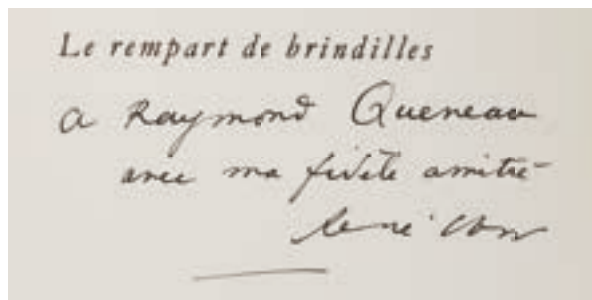 Le rempart de brindilles
a Raymond Queneau
avec ma fidèle amitié
René Char